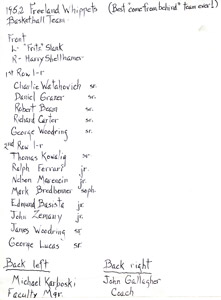 1952 Freeland Whippets (Best "come from behind" team ever!)
Basketball Team
Front
L- "Fritz" Slank
R- Harry Shellhamer
1st Row l-r
Charlie Watahovich sr.
Daniel Grazer sr.
Robert Bean sr.
Richard Carter sr.
George Woodring sr.
2nd Row l-r
Thomas Kowalig sr
Ralph Ferrari jr.
Nelson jr.
Mark Bredbenner soph.
Edmund Basista jr.
John Zemany jr.
James Woodring sr
George Lucas sr.
Back left
Back right
Michael Karboski
John Gallagher
Faculty Mgr.
Coach